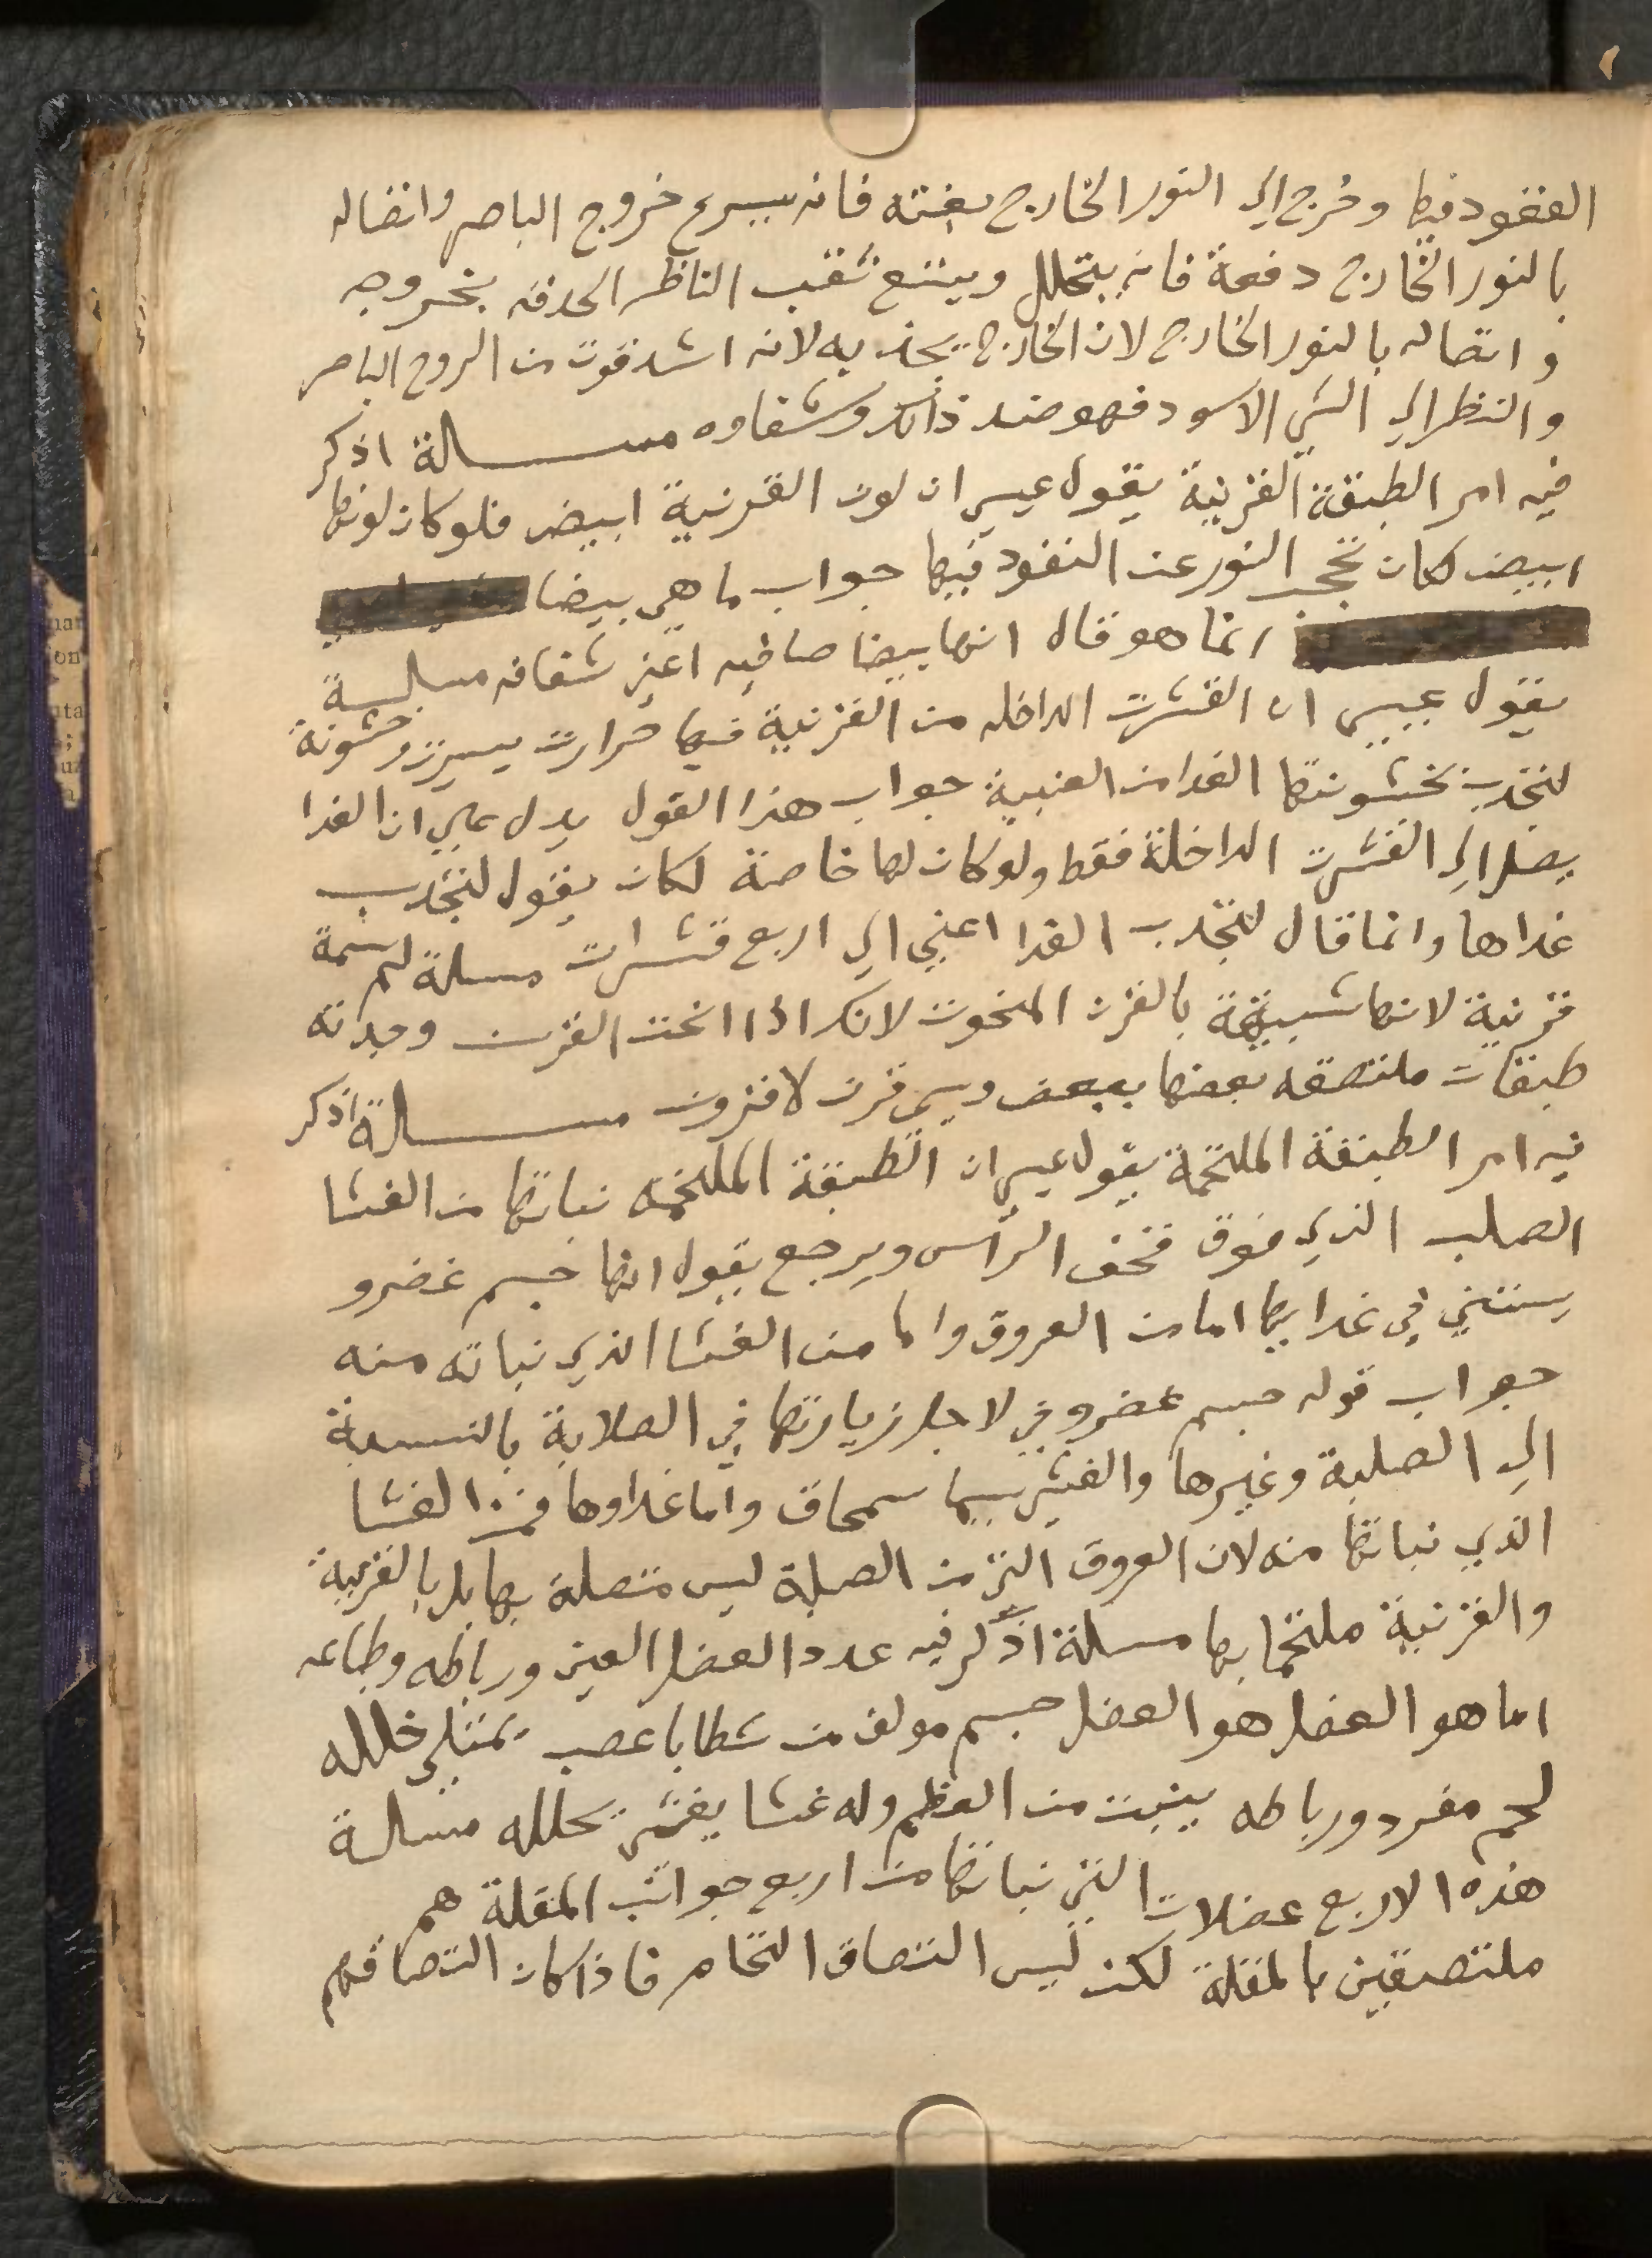 القعود فيها وخرج الي النور الخارج بغتته فانه يسرع خروج الباصر واتصاله
بالنور الخارج دفعة فانه يتحلل ويتسع ثقب الناظر الحدقه بخروجه
واتصاله بالنور الخارج لان الخارج يجذبه لانه اشد قوت من الروح الباصر
والنظر الي الشي الاسود فهو ضد ذالك وشفاوه مسالة اذكر
فيه امر الطبقة القرنية يقول عيسي ان لون القرنية ابيض فلو كان لونها
ابيض لكان تحجب النور عن النفود فيها جواب ما هي بيضا
انما هو قال انها بيضا صافيه اعني شفافه مسالة
يقول عيسي ان القشرت الداخله من القرنية فيها حرارت يسيرت وخشونة
لتجذب بخشونتها الغدا من العنبية جواب هذا القول يدل علي ان الغدا
يصل الي القشرت الداخلة فقط ولو كان لها خاصة لكان يقول لتجذب
غداها وانما قال لتجذب الغدا اعني الي اربع قشرات مسلة لم سمة
قرنية لانها شبيهة بالقرن المنحوت لانك اذا انحت القرن وجدته
طبقات ملتصقه بعضها ببعض ويسمي قرن لا قرون مسالة اذكر
فيه امر الطبقة الملتحمة يقول عيسي ان الطبقة الملتحمه نباتها من الغشا
الصلب الذي فوق قحف الراس ويرجع يقول انها جسم غضرو
يستغني في غدايها اما من العروق واما من الغشا الذي نباته منه
جواب قوله جسم غضروفي لاجل زيارتها في الصلابة بالنسبة
الي الصلبة وغيرها والغشي يسما سمحاق واما غداوها فمن الغشا
الذي نباتها منه لان العروق التي من الصلبة ليس متصلة بها بل بالقرنية
والقرنية ملتحما بها مسلة اذكر فيه عدد العضل العين ورباطه وطباعه
اما هو العضل هو العضل جسم مولف من شطايا عصب يمتلي خلله
لحم مفرد ورباطه ينبت من العظم وله غشا يغشي تحلله مسالة
هذه الاربع عضلات التي نباتها من اربع جوانب المقلة هم
ملتصقين بالمقلة لكن ليس التصاق التحام فاذا كان التصاقهم